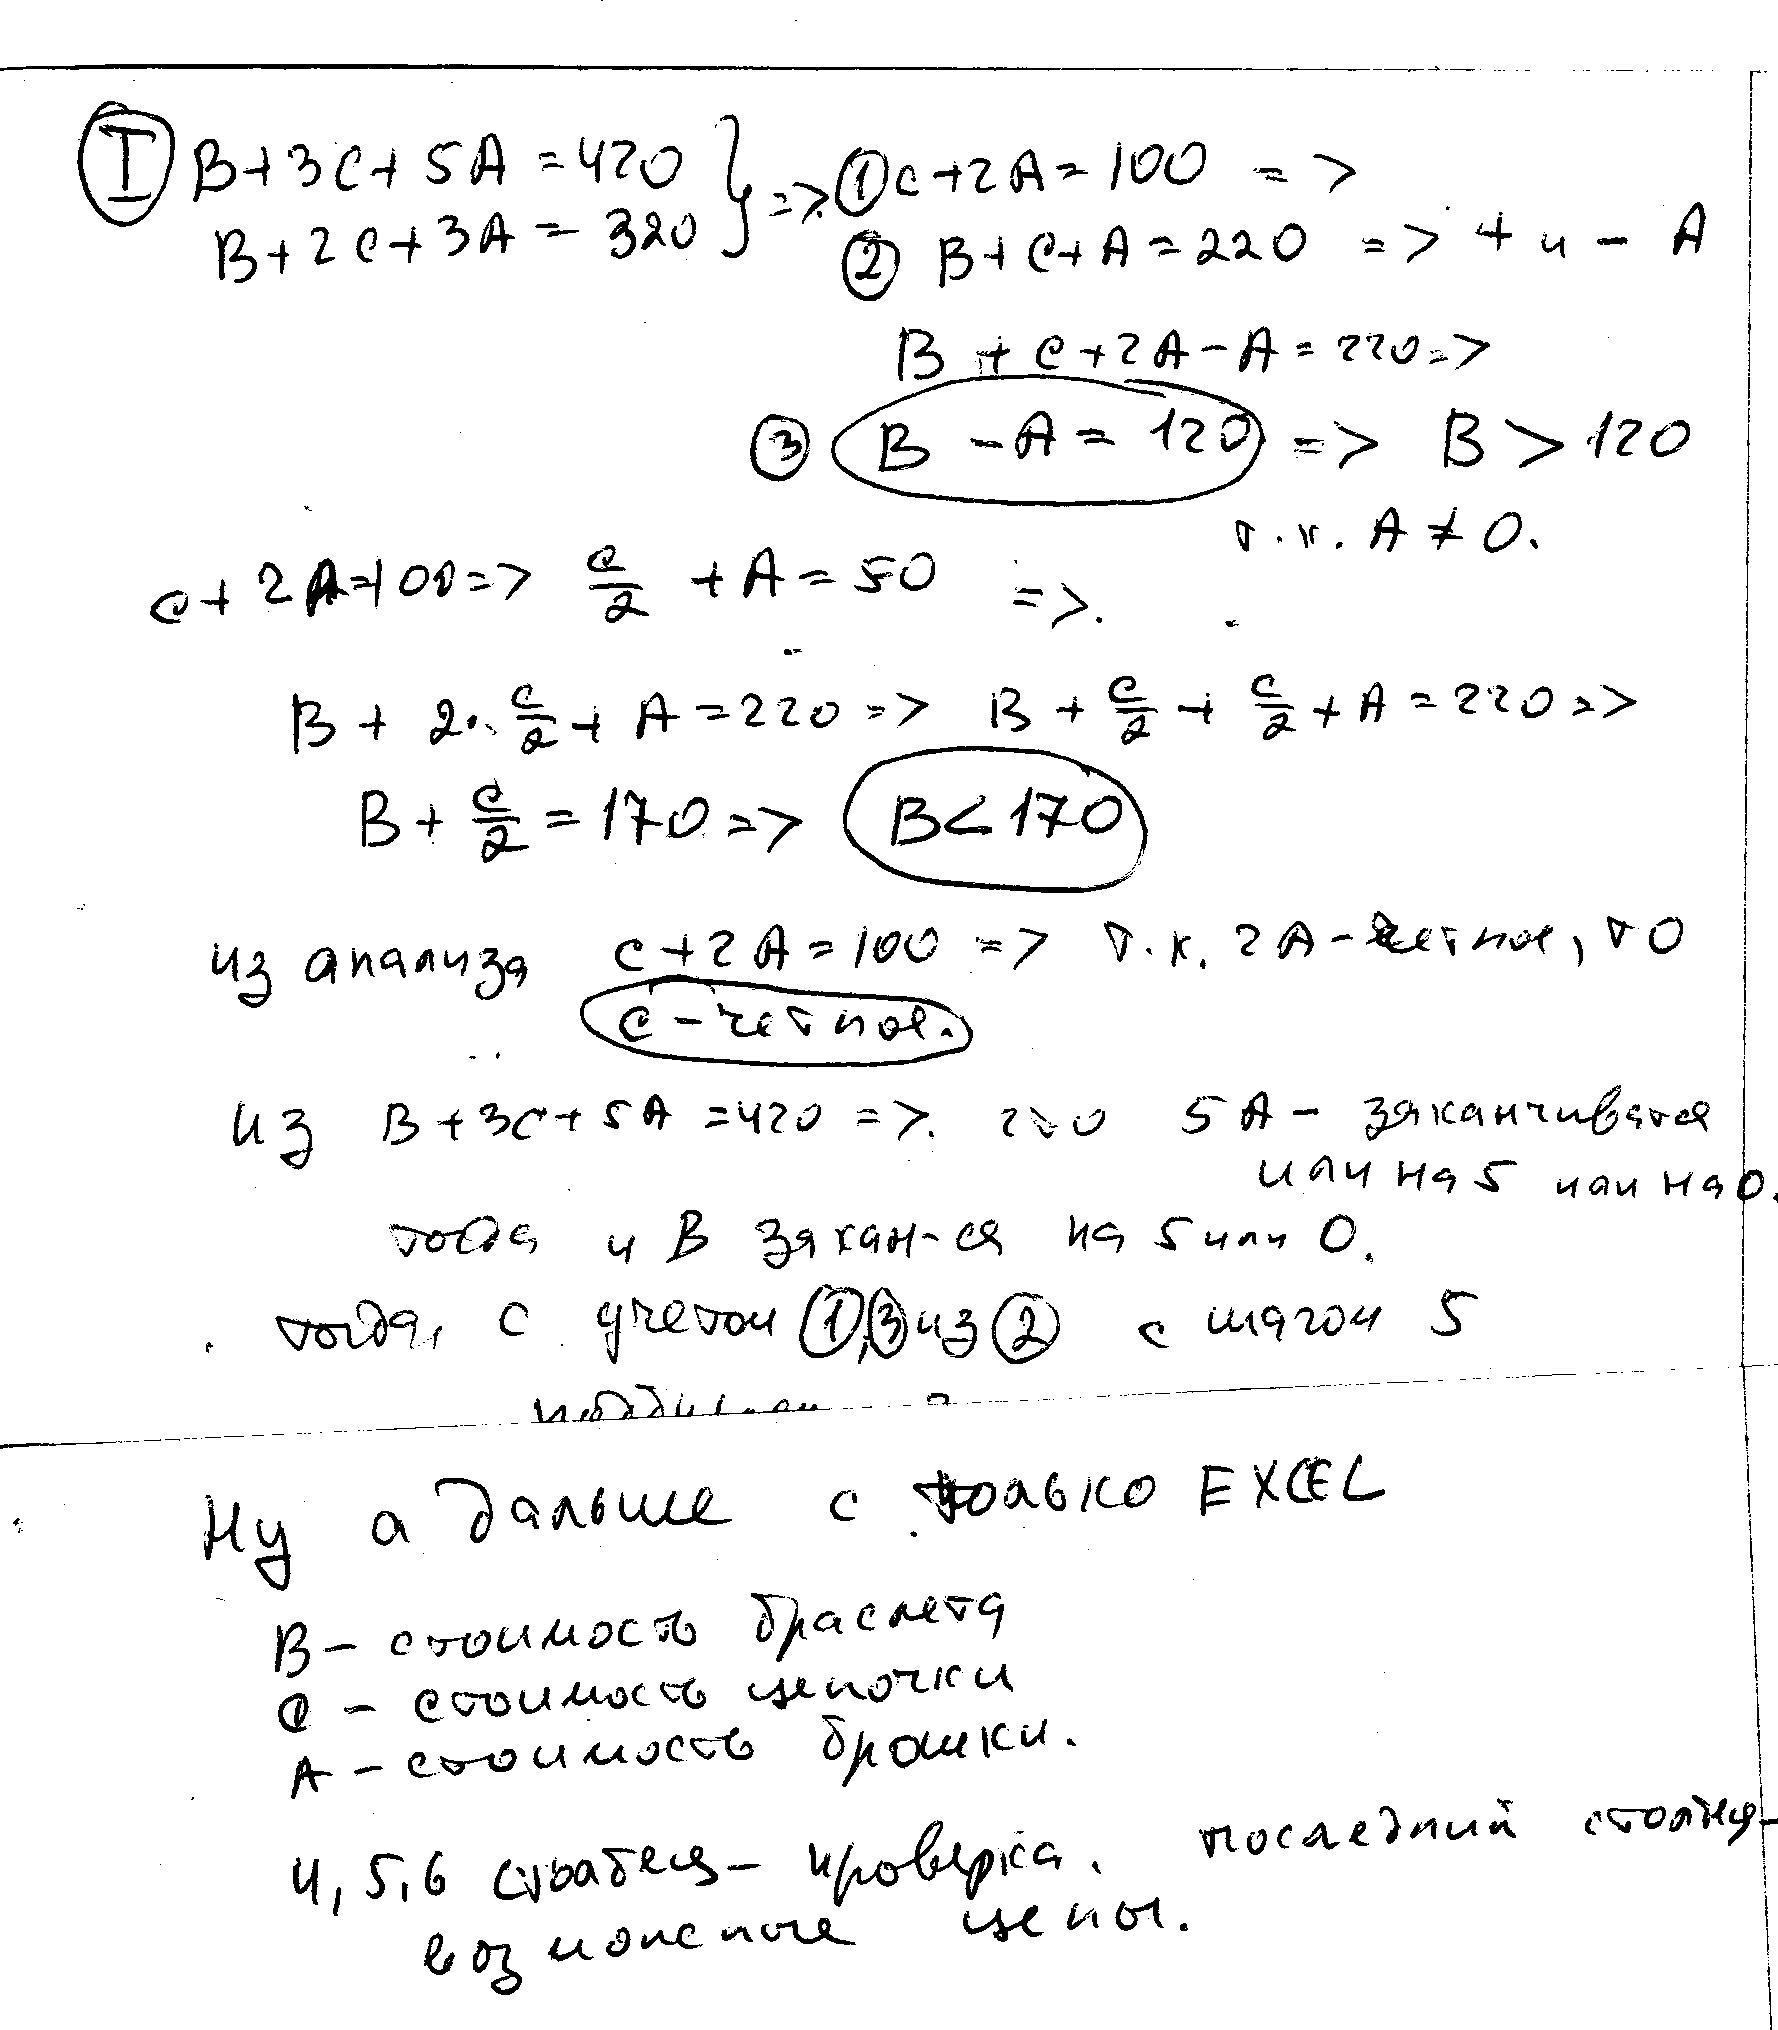 I B+3C+5A=420 } => ① C+2A=100 =>
B+2C+3A=320 ② B+C+A=220 => + и - A
B+C+2A-A=220=>
③ B-A=120 => B>120
т.к. A≠0.
C+2A=100=> C/2 +A=50 =>.
B+2·C/2+A=220=> B+C/2+C/2+A=220=>
B+C/2=170=> B<170
из анализа C+2A=100 => т.к. 2A-четное, то
C-четное.
из B+3C+5A=420 =>. 5A- заканчивается
или на 5 или на 0.
тогда и B закан-ся на 5 или 0.
тогда, с учетом ①,③ из ② с шагом 5
Ну а дальше с только EXCEL
B- стоимость браслета
C - стоимость цепочки
A - стоимость брошки.
4,5,6 столбец- проверка. последний столбец-
возможные цены.